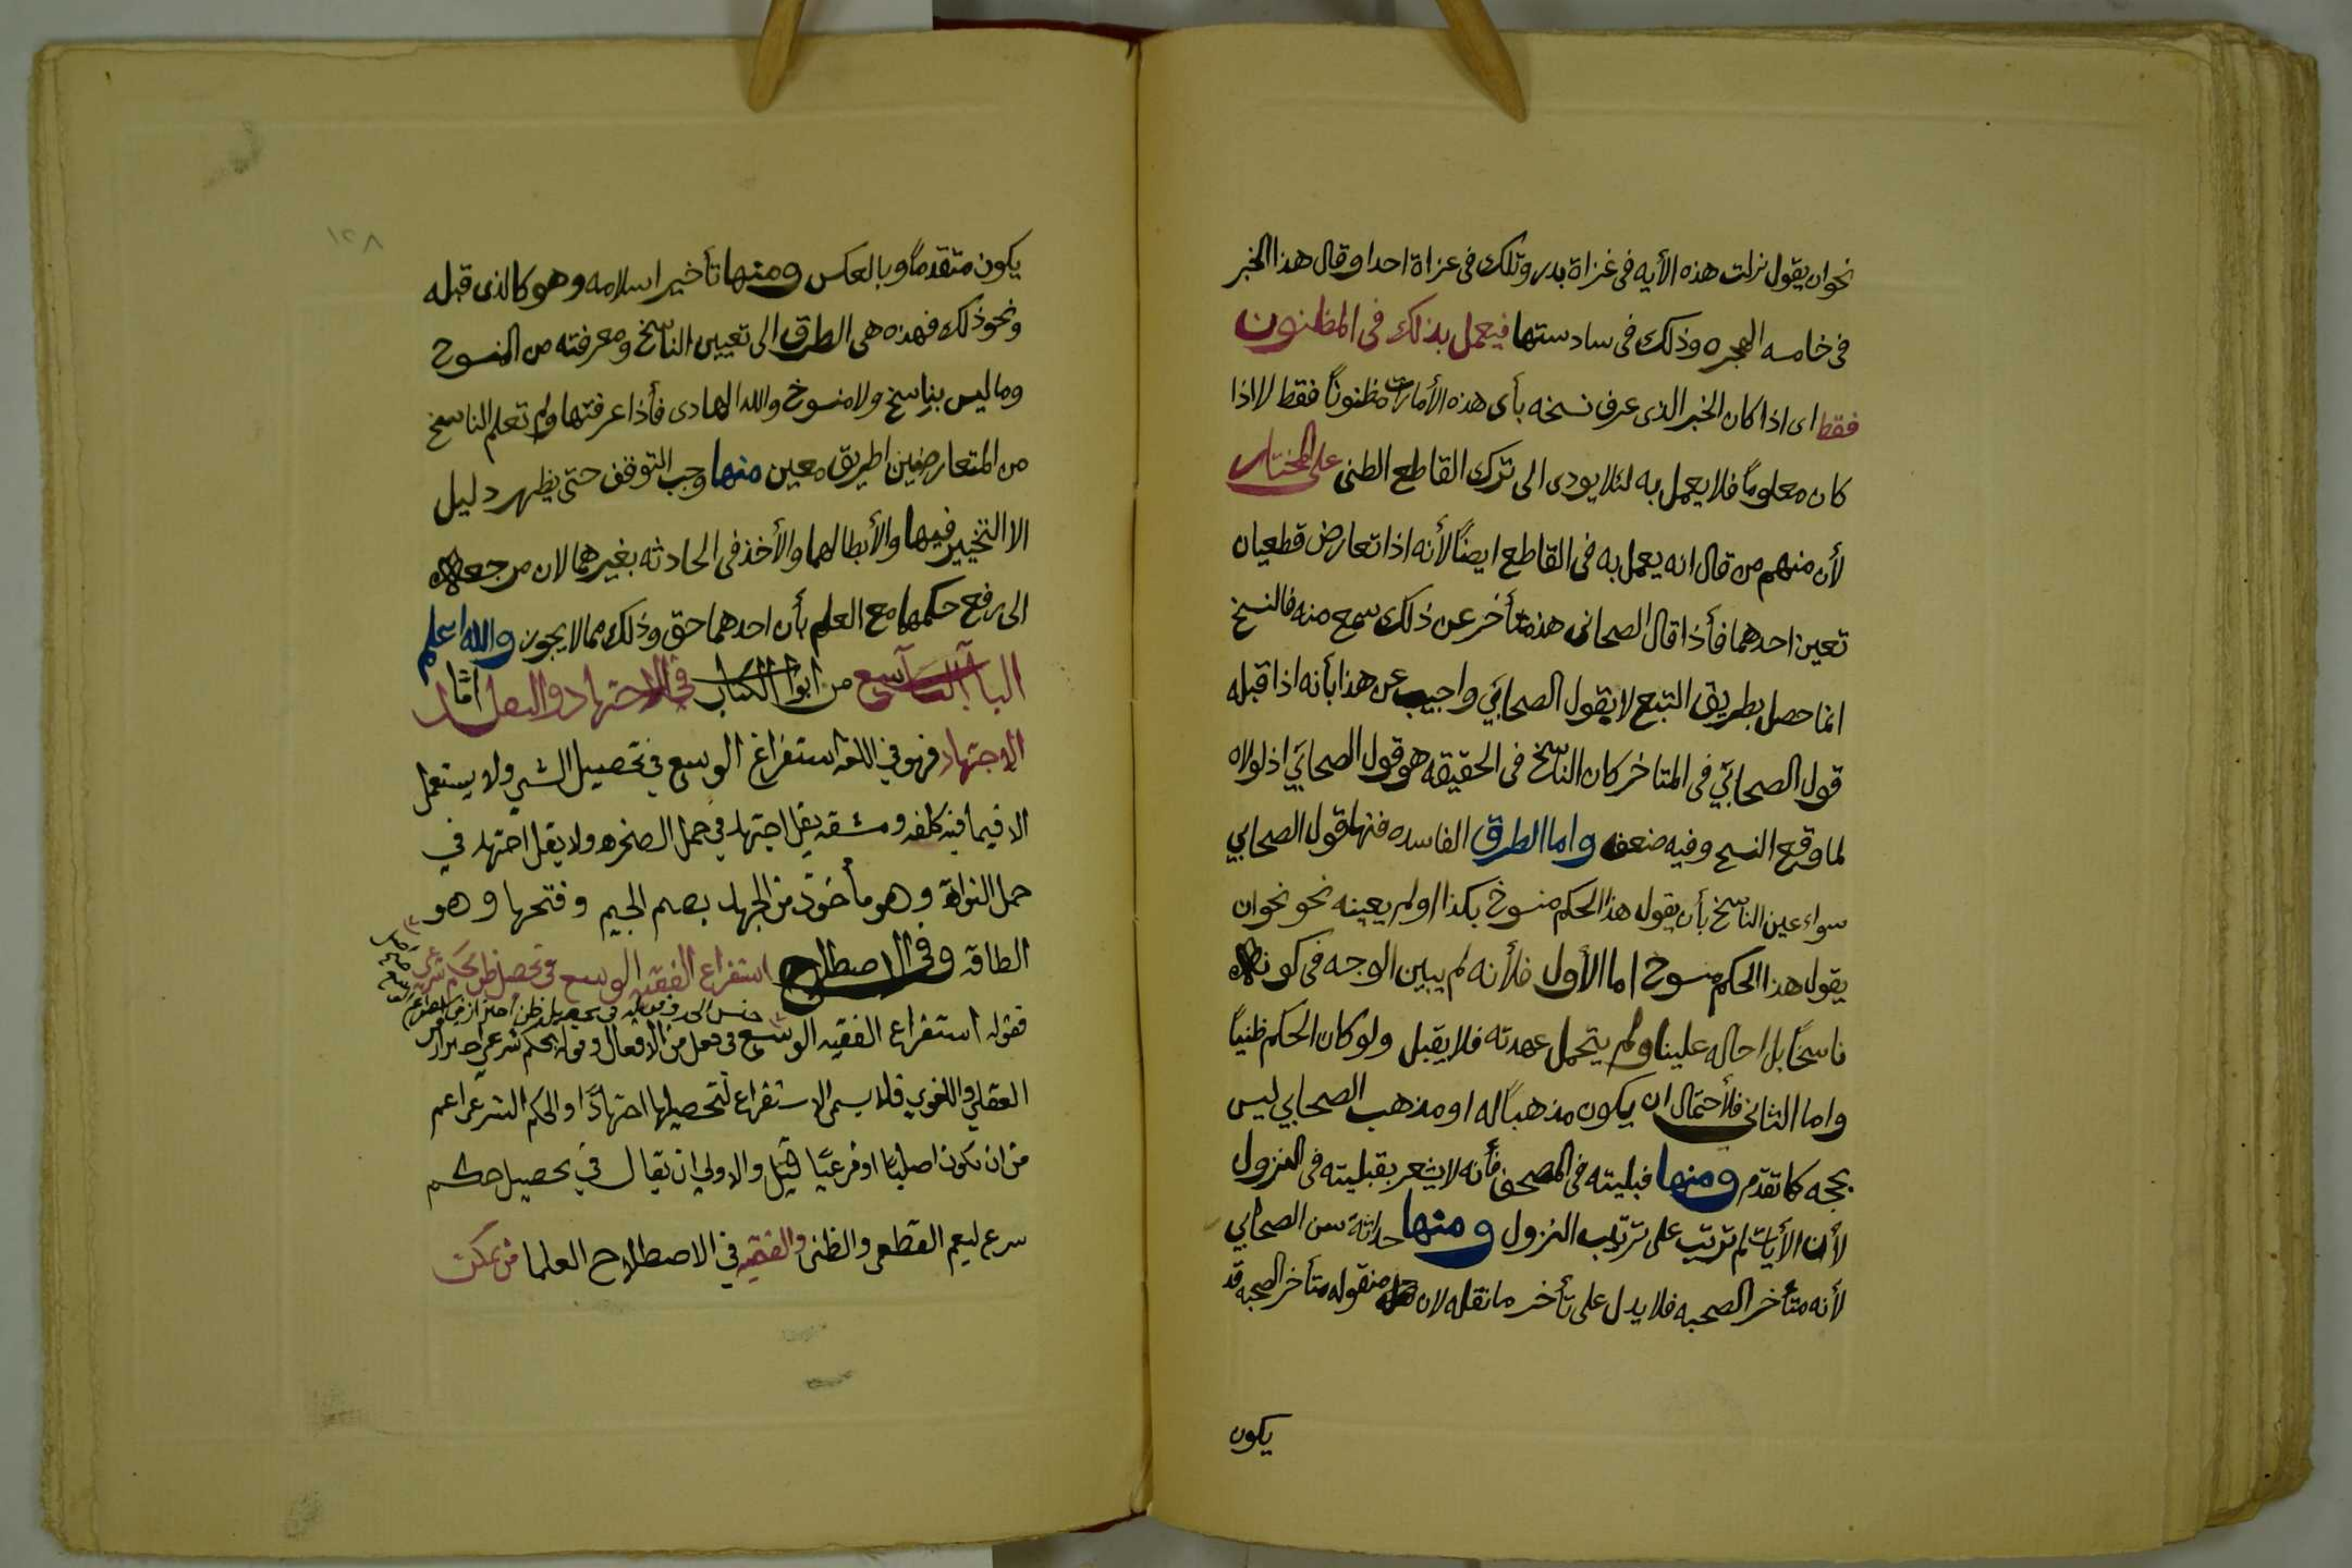 نحو ان يقول نزلت هذه الأيه فى غزاة بدر وتلك فى غزاة احد او قال هذا الخبر
فى خامسه الهجره وذلك فى سادستها فيعمل بذلك فى المظنون
فقط اى اذا كان الخبر الذى عرف نسخه بأى هذه الأمارات مظنونًا فقط لا اذا
كان معلومًا فلا يعمل به لئلا يودى الى ترك القاطع الظنى على المختار
لأن منهم من قال انه يعمل به فى القاطع ايضًا لأنه اذا تعارض قطعيان
تعين احدهما فأذا قال الصحابى هذا متأخر عن ذلك سمع منه فالنسخ
انما حصل بطريق التبع لا بقول الصحابي واجيب عن هذا بأنه اذا قبله
قول الصحابي فى المتاخر كان الناسخ فى الحقيقه هو قول الصحابي اذ لولاه
لما وقع النسخ وفيه ضعف واما الطرق الفاسده فمنها قول الصحابي
سواء عين الناسخ بأن يقول هذا الحكم منسوخ بكذا او لم يعينه نحو نحو ان
يقول هذا الحكم منسوخ اما الأول فلأنه لم يبين الوجه فى كونه
ناسخًا بل احاله علينا ولم يتحمل عهدته فلا يقبل ولو كان الحكم ظنيًا
واما الثانى فلأحتمال ان يكون مذهبًا له او مذهب الصحابي ليس
بحجه كما تقدم ومنها قبليته فى المصحف فأنه لا يشعر بقبليته فى النزول
لأن الأيات لم ترتب على ترتيب النزول ومنها حداثة سن الصحابي
لأنه متأخر الصحبه فلا يدل على تأخر ما نقله لان منقوله متأخر الصحبه قد
يكون
١٢٨
يكون متقدمًا وبالعكس ومنها تأخير اسلامه وهو كالذى قبله
ونحو ذلك فهذه هى الطرق الى تعيين الناسخ ومعرفته من المنسوخ
وما ليس بناسخ ولا منسوخ والله الهادى فأذا عرفتها ولم تعلم الناسخ
من المتعارضين لطريق معين منها وجب التوقف حتى يظهر دليل
الا التخيير فيها والأبطال لهما والأخذ فى الحادثه بغيرهما لان مرجعه
الى رفع حكمهما مع العلم بأن احدهما حق وذلك مما لا يجوز والله اعلم
الباب التاسع من ابواب الكتاب في الاجتهاد والتقليد امّا
الاجتهاد فهو في اللغه استفراغ الوسع في تحصيل الشي ولا يستعمل
الا فيما فيه كلفه ومشقه يقل اجتهد في حمل الصخره ولا يقل اجتهد في
حمل النواة وهو مأخوذ من الجهد بضم الجيم وفتحها وهو
الطاقه وفى الاصطلاح استفراغ الفقيه الوسع في تحصيل ظن بحكم شرعي
فقوله استفراغ الفقيه الوسع في فعل من الافعال وقوله بحكم شرعي احتراز من
العقلي واللغوي فلا يسمى الاستفراغ لتحصيلها اجتهادًا والحكم الشرعي اعم
من ان يكون اصليًا او فرعيًا قيل والاولي ان يقال في تحصيل حكم
شرع ليعم القطعي والظني والفقيه في الاصطلاح العلما من يمكن